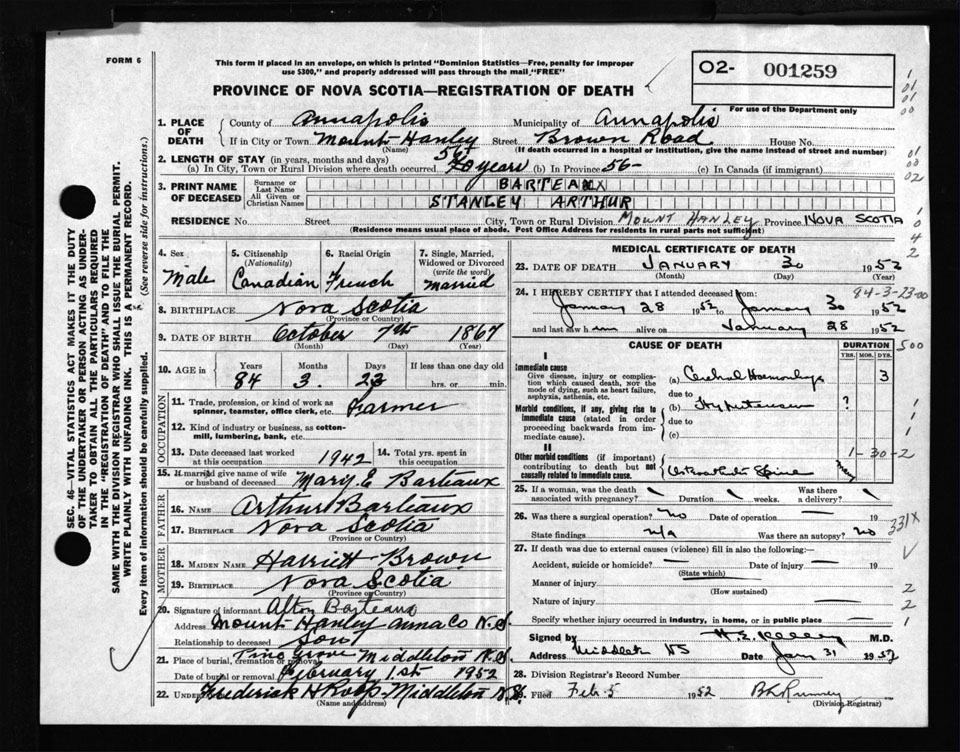 FORM 6
This form if placed in an envelope, on which is printed "Dominion Statistics—Free, penalty for improper
use $300," and properly addressed will pass through the mail "FREE"
O2- 001259
PROVINCE OF NOVA SCOTIA—REGISTRATION OF DEATH
For use of the Department only
1. PLACE OF DEATH
County of Annapolis Municipality of Annapolis
If in City or Town Mount Hanley Street Brown Road House No.
(Name) (If death occurred in a hospital or institution, give the name instead of street and number)
2. LENGTH OF STAY (in years, months and days)
(a) In City, Town or Rural Division where death occurred years (b) In Province 56- (c) In Canada (if immigrant)
3. PRINT NAME OF DECEASED
Surname or Last Name BARTEAUX
All Given or Christian Names STANLEY ARTHUR
RESIDENCE No. Street City, Town or Rural Division MOUNT HANLEY Province NOVA SCOTIA
(Residence means usual place of abode. Post Office Address for residents in rural parts not sufficient)
4. Sex Male
5. Citizenship (Nationality) Canadian
6. Racial Origin French
7. Single, Married, Widowed or Divorced (write the word) Married
8. BIRTHPLACE Nova Scotia
(Province or Country)
9. DATE OF BIRTH October 7th 1867
(Month) (Day) (Year)
10. AGE in Years Months Days If less than one day old
84 3. 23 hrs. or min.
OCCUPATION
11. Trade, profession, or kind of work as spinner, teamster, office clerk, etc. Farmer
12. Kind of industry or business, as cotton-mill, lumbering, bank, etc.
13. Date deceased last worked at this occupation 1942 14. Total yrs. spent in this occupation
15. If married give name of wife or husband of deceased Mary E Barteaux
FATHER
16. Name Arthur Barteaux
17. Birthplace Nova Scotia
(Province or Country)
MOTHER
18. MAIDEN NAME Harriett Brown
19. BIRTHPLACE Nova Scotia
(Province or Country)
20. Signature of informant Alton Barteaux
Address Mount Hanley Anna Co N.S
Relationship to deceased Son
21. Place of burial, cremation or removal Pine Grove Middleton N.S
Date of burial or removal February 1st 1952
22. Undertaker Frederick H Roop-Middleton N.S.
(Name and address)
MEDICAL CERTIFICATE OF DEATH
23. DATE OF DEATH JANUARY 30 1952
(Month) (Day) (Year)
84-3-23-00
24. I HEREBY CERTIFY that I attended deceased from:
January 28 1952 to January 30 1952
and last saw him alive on January 28 1952
CAUSE OF DEATH DURATION
YRS. MOS. DYS.
500
I
Immediate cause
Give disease, injury or complication which caused death, NOT the mode of dying, such as heart failure, asphyxia, asthenia, etc.
(a) Cerebral Haemorrhage 3
due to
Morbid conditions, if any, giving rise to immediate cause (stated in order proceeding backwards from immediate cause).
(b) Hypertension ?
due to
(c)
1-30-2
II
Other morbid conditions (if important) contributing to death but not causally related to immediate cause.
Spine many
25. If a woman, was the death associated with pregnancy? Duration weeks. Was there a delivery?
26. Was there a surgical operation? no Date of operation 19
State findings n/a Was there an autopsy? no
331X
27. If death was due to external causes (violence) fill in also the following:—
Accident, suicide or homicide? Date of injury 19
(State which)
Manner of injury
(How sustained)
Nature of injury
Specify whether injury occurred in industry, in home, or in public place
Signed by M.D.
Address Middleton NS Date Jan 31 1952
28. Division Registrar's Record Number
29. Filed Feb 5 1952
(Division Registrar)
SEC. 46—VITAL STATISTICS ACT MAKES IT THE DUTY
OF THE UNDERTAKER OR PERSON ACTING AS UNDER-
TAKER TO OBTAIN ALL THE PARTICULARS REQUIRED
IN THE "REGISTRATION OF DEATH" AND TO FILE THE
SAME WITH THE DIVISION REGISTRAR WHO SHALL ISSUE THE BURIAL PERMIT.
WRITE PLAINLY WITH UNFADING INK. THIS IS A PERMANENT RECORD.
Every item of information should be carefully supplied. (See reverse side for instructions.)